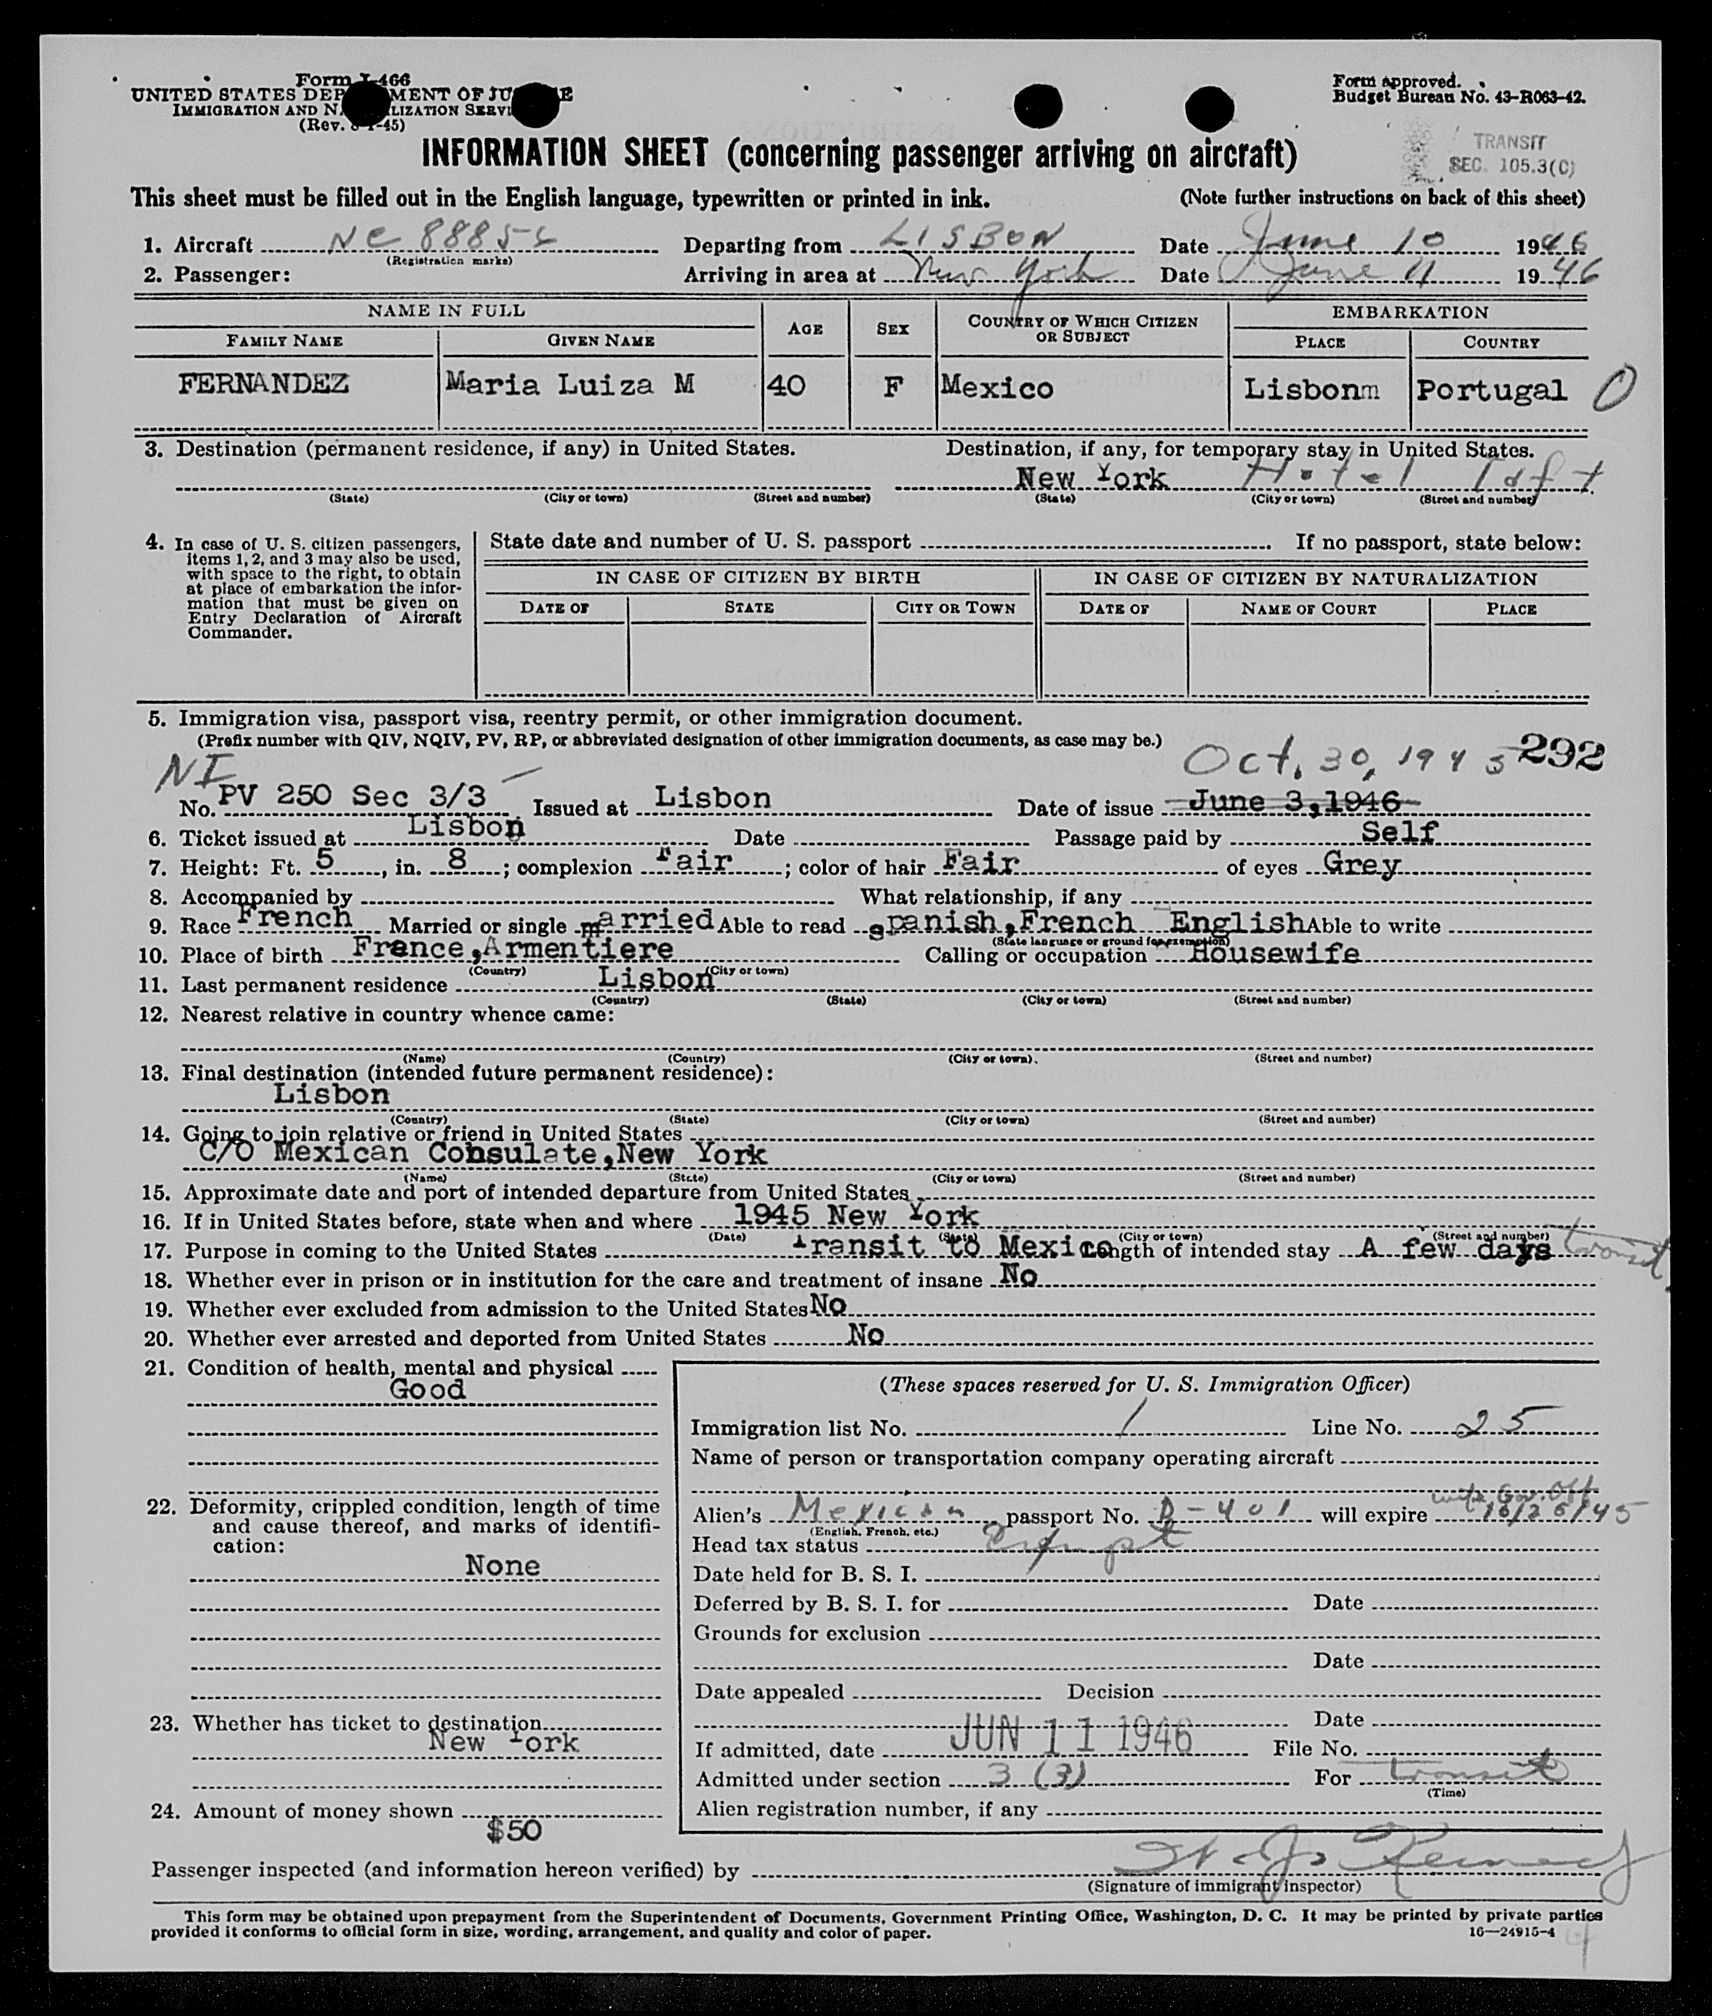 Form I-466
UNITED STATES DEP MENT OF JU E
IMMIGRATION AND NA LIZATION SERVI
(Rev. -45)
Form approved.
Budget Bureau No. 43-R063-42.
TRANSIT
SEC. 105.3(C)
INFORMATION SHEET (concerning passenger arriving on aircraft)
This sheet must be filled out in the English language, typewritten or printed in ink. (Note further instructions on back of this sheet)
1. Aircraft NC 8885 Departing from LISBON Date June 10 1946
(Registration marks)
2. Passenger: Arriving in area at New York Date June 11 1946
NAME IN FULL AGE SEX COUNTRY OF WHICH CITIZEN OR SUBJECT EMBARKATION
FAMILY NAME GIVEN NAME PLACE COUNTRY
FERNANDEZ Maria Luiza M 40 F Mexico Lisbonm Portugal O
3. Destination (permanent residence, if any) in United States. Destination, if any, for temporary stay in United States.
New York Hotel Taft
(State) (City or town) (Street and number) (State) (City or town) (Street and number)
4. In case of U. S. citizen passengers, items 1, 2, and 3 may also be used, with space to the right, to obtain at place of embarkation the information that must be given on Entry Declaration of Aircraft Commander.
State date and number of U. S. passport . If no passport, state below:
IN CASE OF CITIZEN BY BIRTH IN CASE OF CITIZEN BY NATURALIZATION
DATE OF STATE CITY OR TOWN DATE OF NAME OF COURT PLACE
5. Immigration visa, passport visa, reentry permit, or other immigration document.
(Prefix number with QIV, NQIV, PV, RP, or abbreviated designation of other immigration documents, as case may be.)
NI Oct. 30, 1945 292
No. PV 250 Sec 3/3 Issued at Lisbon Date of issue June 3,1946
6. Ticket issued at Lisbon Date Passage paid by Self
7. Height: Ft. 5, in. 8; complexion Fair; color of hair Fair of eyes Grey
8. Accompanied by What relationship, if any
9. Race French Married or single married Able to read spanish,French English Able to write
(State language or ground for exemption)
10. Place of birth France,Armentiere Calling or occupation Housewife
(Country) (City or town)
11. Last permanent residence Lisbon
(Country) (State) (City or town) (Street and number)
12. Nearest relative in country whence came:
(Name) (Country) (City or town) (Street and number)
13. Final destination (intended future permanent residence):
Lisbon
(Country) (State) (City or town) (Street and number)
14. Going to join relative or friend in United States
C/O Mexican Consulate,New York
(Name) (State) (City or town) (Street and number)
15. Approximate date and port of intended departure from United States
16. If in United States before, state when and where 1945 New York
(Date) (State) (City or town) (Street and number)
17. Purpose in coming to the United States Transit to Mexico Length of intended stay A few days transit
18. Whether ever in prison or in institution for the care and treatment of insane No
19. Whether ever excluded from admission to the United States No
20. Whether ever arrested and deported from United States No
21. Condition of health, mental and physical
Good
22. Deformity, crippled condition, length of time and cause thereof, and marks of identification:
None
23. Whether has ticket to destination
New York
24. Amount of money shown
$50
(These spaces reserved for U. S. Immigration Officer)
Immigration list No. 1 Line No. 25
Name of person or transportation company operating aircraft
Alien's Mexican passport No. D-401 will expire 10/26/45
(English, French, etc.)
Head tax status Exempt
Date held for B. S. I.
Deferred by B. S. I. for Date
Grounds for exclusion
Date
Date appealed Decision
Date
If admitted, date JUN 11 1946 File No.
Admitted under section 3 (3) For transit
(Time)
Alien registration number, if any
Passenger inspected (and information hereon verified) by
(Signature of immigrant inspector)
This form may be obtained upon prepayment from the Superintendent of Documents, Government Printing Office, Washington, D. C. It may be printed by private parties
provided it conforms to official form in size, wording, arrangement, and quality and color of paper. 16—24915-4